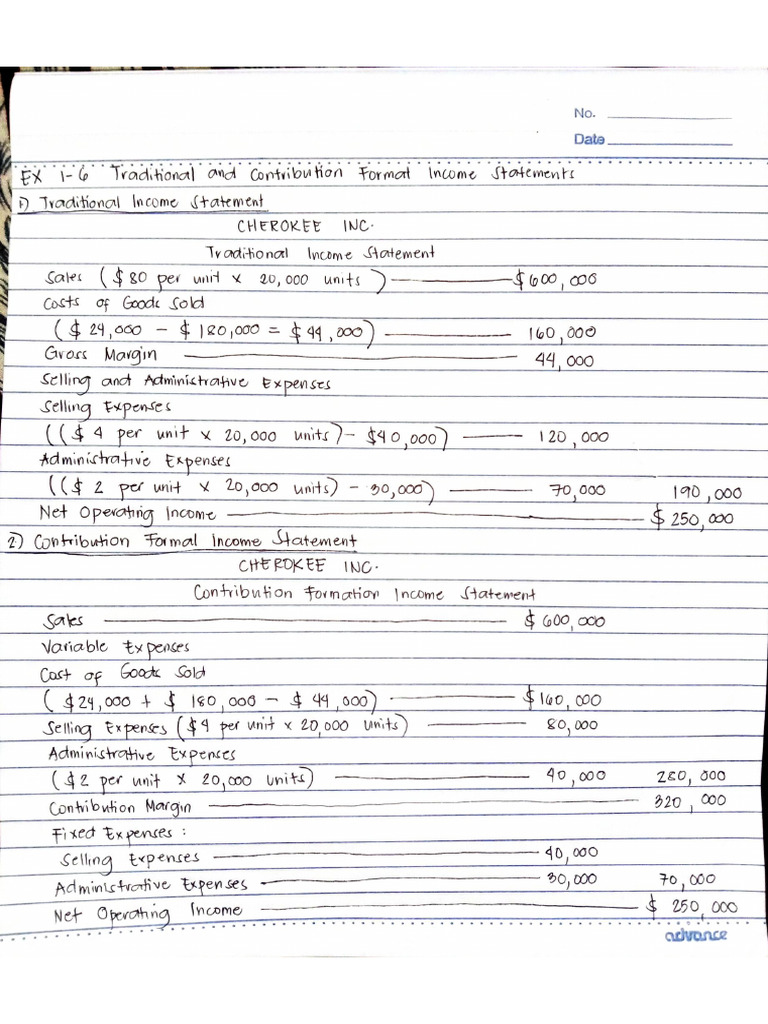 No.
Date
EX 1-6 Traditional and Contribution Format Income Statements
1) Traditional Income Statement
CHEROKEE INC.
Traditional Income Statement
Sales ($80 per unit x 20,000 units) $600,000
Costs of Goods Sold
($24,000 - $180,000 = $44,000) 160,000
Gross Margin 44,000
Selling and Administrative Expenses
Selling Expenses
(($4 per unit x 20,000 units) - $40,000) 120,000
Administrative Expenses
(($2 per unit x 20,000 units) - 30,000) 70,000 190,000
Net Operating Income $250,000
2) Contribution Formal Income Statement
CHEROKEE INC.
Contribution Formation Income Statement
Sales $600,000
Variable Expenses
Cost of Goods Sold
($24,000 + $180,000 - $44,000) $160,000
Selling Expenses ($4 per unit x 20,000 units) 80,000
Administrative Expenses
($2 per unit x 20,000 units) 40,000 280,000
Contribution Margin 320,000
Fixed Expenses:
Selling Expenses 40,000
Administrative Expenses 30,000 70,000
Net Operating Income $250,000
advance